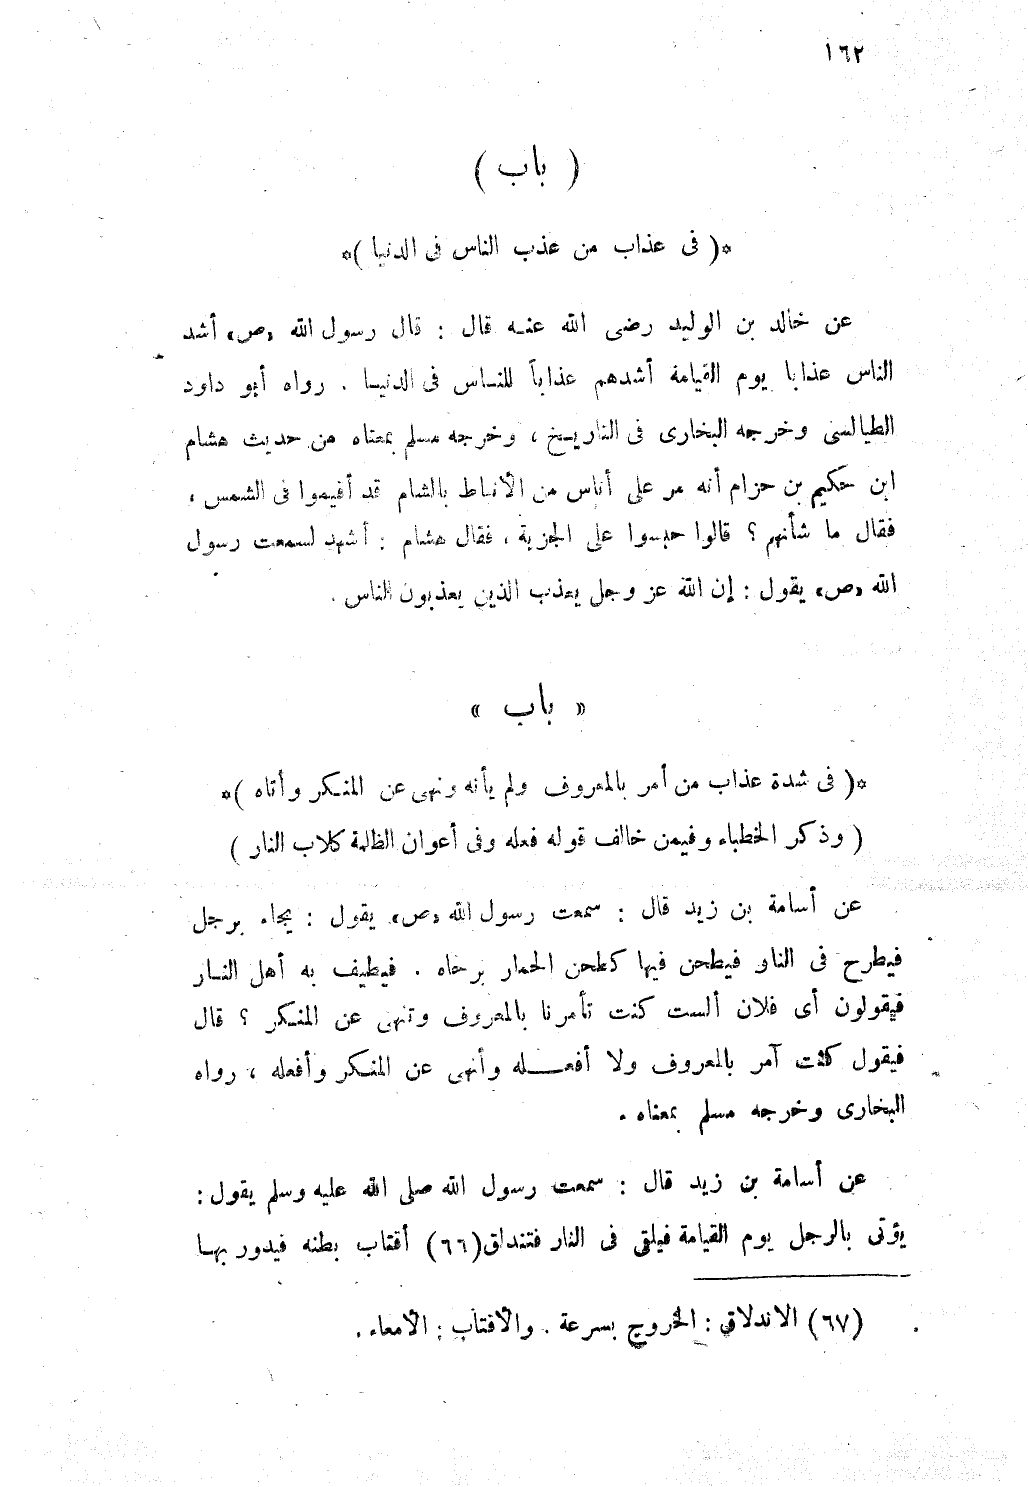 ١٦٢
( باب )
*( فى عذاب من عذب الناس فى الدنيا )*
عن خالد بن الوليد رضى الله عنه قال : قال رسول الله «ص» أشد
الناس عذابا يوم القيامة أشدهم عذاباً للناس فى الدنيا . رواه أبو داود
الطيالسى وخرجه البخارى فى التاريخ ، وخرجه مسلم بمعناه من حديث هشام
ابن حكيم بن حزام أنه مر على أناس من الأنباط بالشام قد أقيموا فى الشمس ،
فقال ما شأنهم ؟ قالوا حبسوا على الجزية ، فقال هشام : أشهد لسمعت رسول
الله «ص» يقول : إن الله عز وجل يعذب الذين يعذبون الناس .
« باب »
*( فى شدة عذاب من أمر بالمعروف ولم يأنه ونهى عن المنكر وأتاه )*
( وذكر الخطباء وفيمن خالف قوله فعله وفى أعوان الظالمة كلاب النار )
عن أسامة بن زيد قال : سمعت رسول الله «ص» يقول : يجاء برجل
فيطرح فى النار فيطحن فيها كطحن الحمار برحاه . فيطيف به أهل النار
فيقولون أى فلان ألست كنت تأمرنا بالمعروف وتنهى عن المنكر ؟ قال
فيقول كنت آمر بالمعروف ولا أفعله وأنهى عن المنكر وأفعله ، رواه
البخارى وخرجه مسلم بمعناه .
عن أسامة بن زيد قال : سمعت رسول الله صلى الله عليه وسلم يقول :
يؤتى بالرجل يوم القيامة فيلقى فى النار فتندلق (٦٦) أقتاب بطنه فيدور بها
(٦٧) الاندلاق : الخروج بسرعة . والأقتاب : الأمعاء .